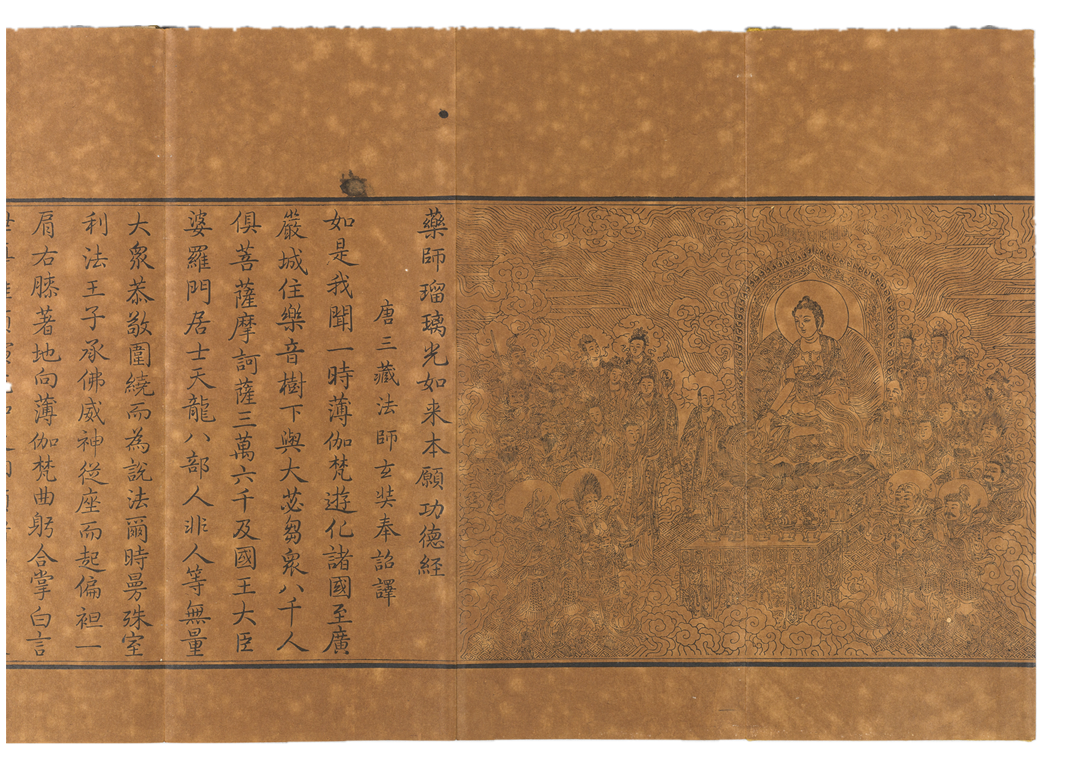 藥師瑠璃光如来本願功德経
唐三藏法師玄奘奉詔譯
如是我聞一時薄伽梵遊化諸國至廣
嚴城住樂音樹下與大苾芻衆八千人
俱菩薩摩訶薩三萬六千及國王大臣
婆羅門居士天龍八部人非人等無量
大衆恭敬圍繞而為說法爾時曼殊室
利法王子承佛威神從座而起偏袒一
肩右膝著地向薄伽梵曲躬合掌白言